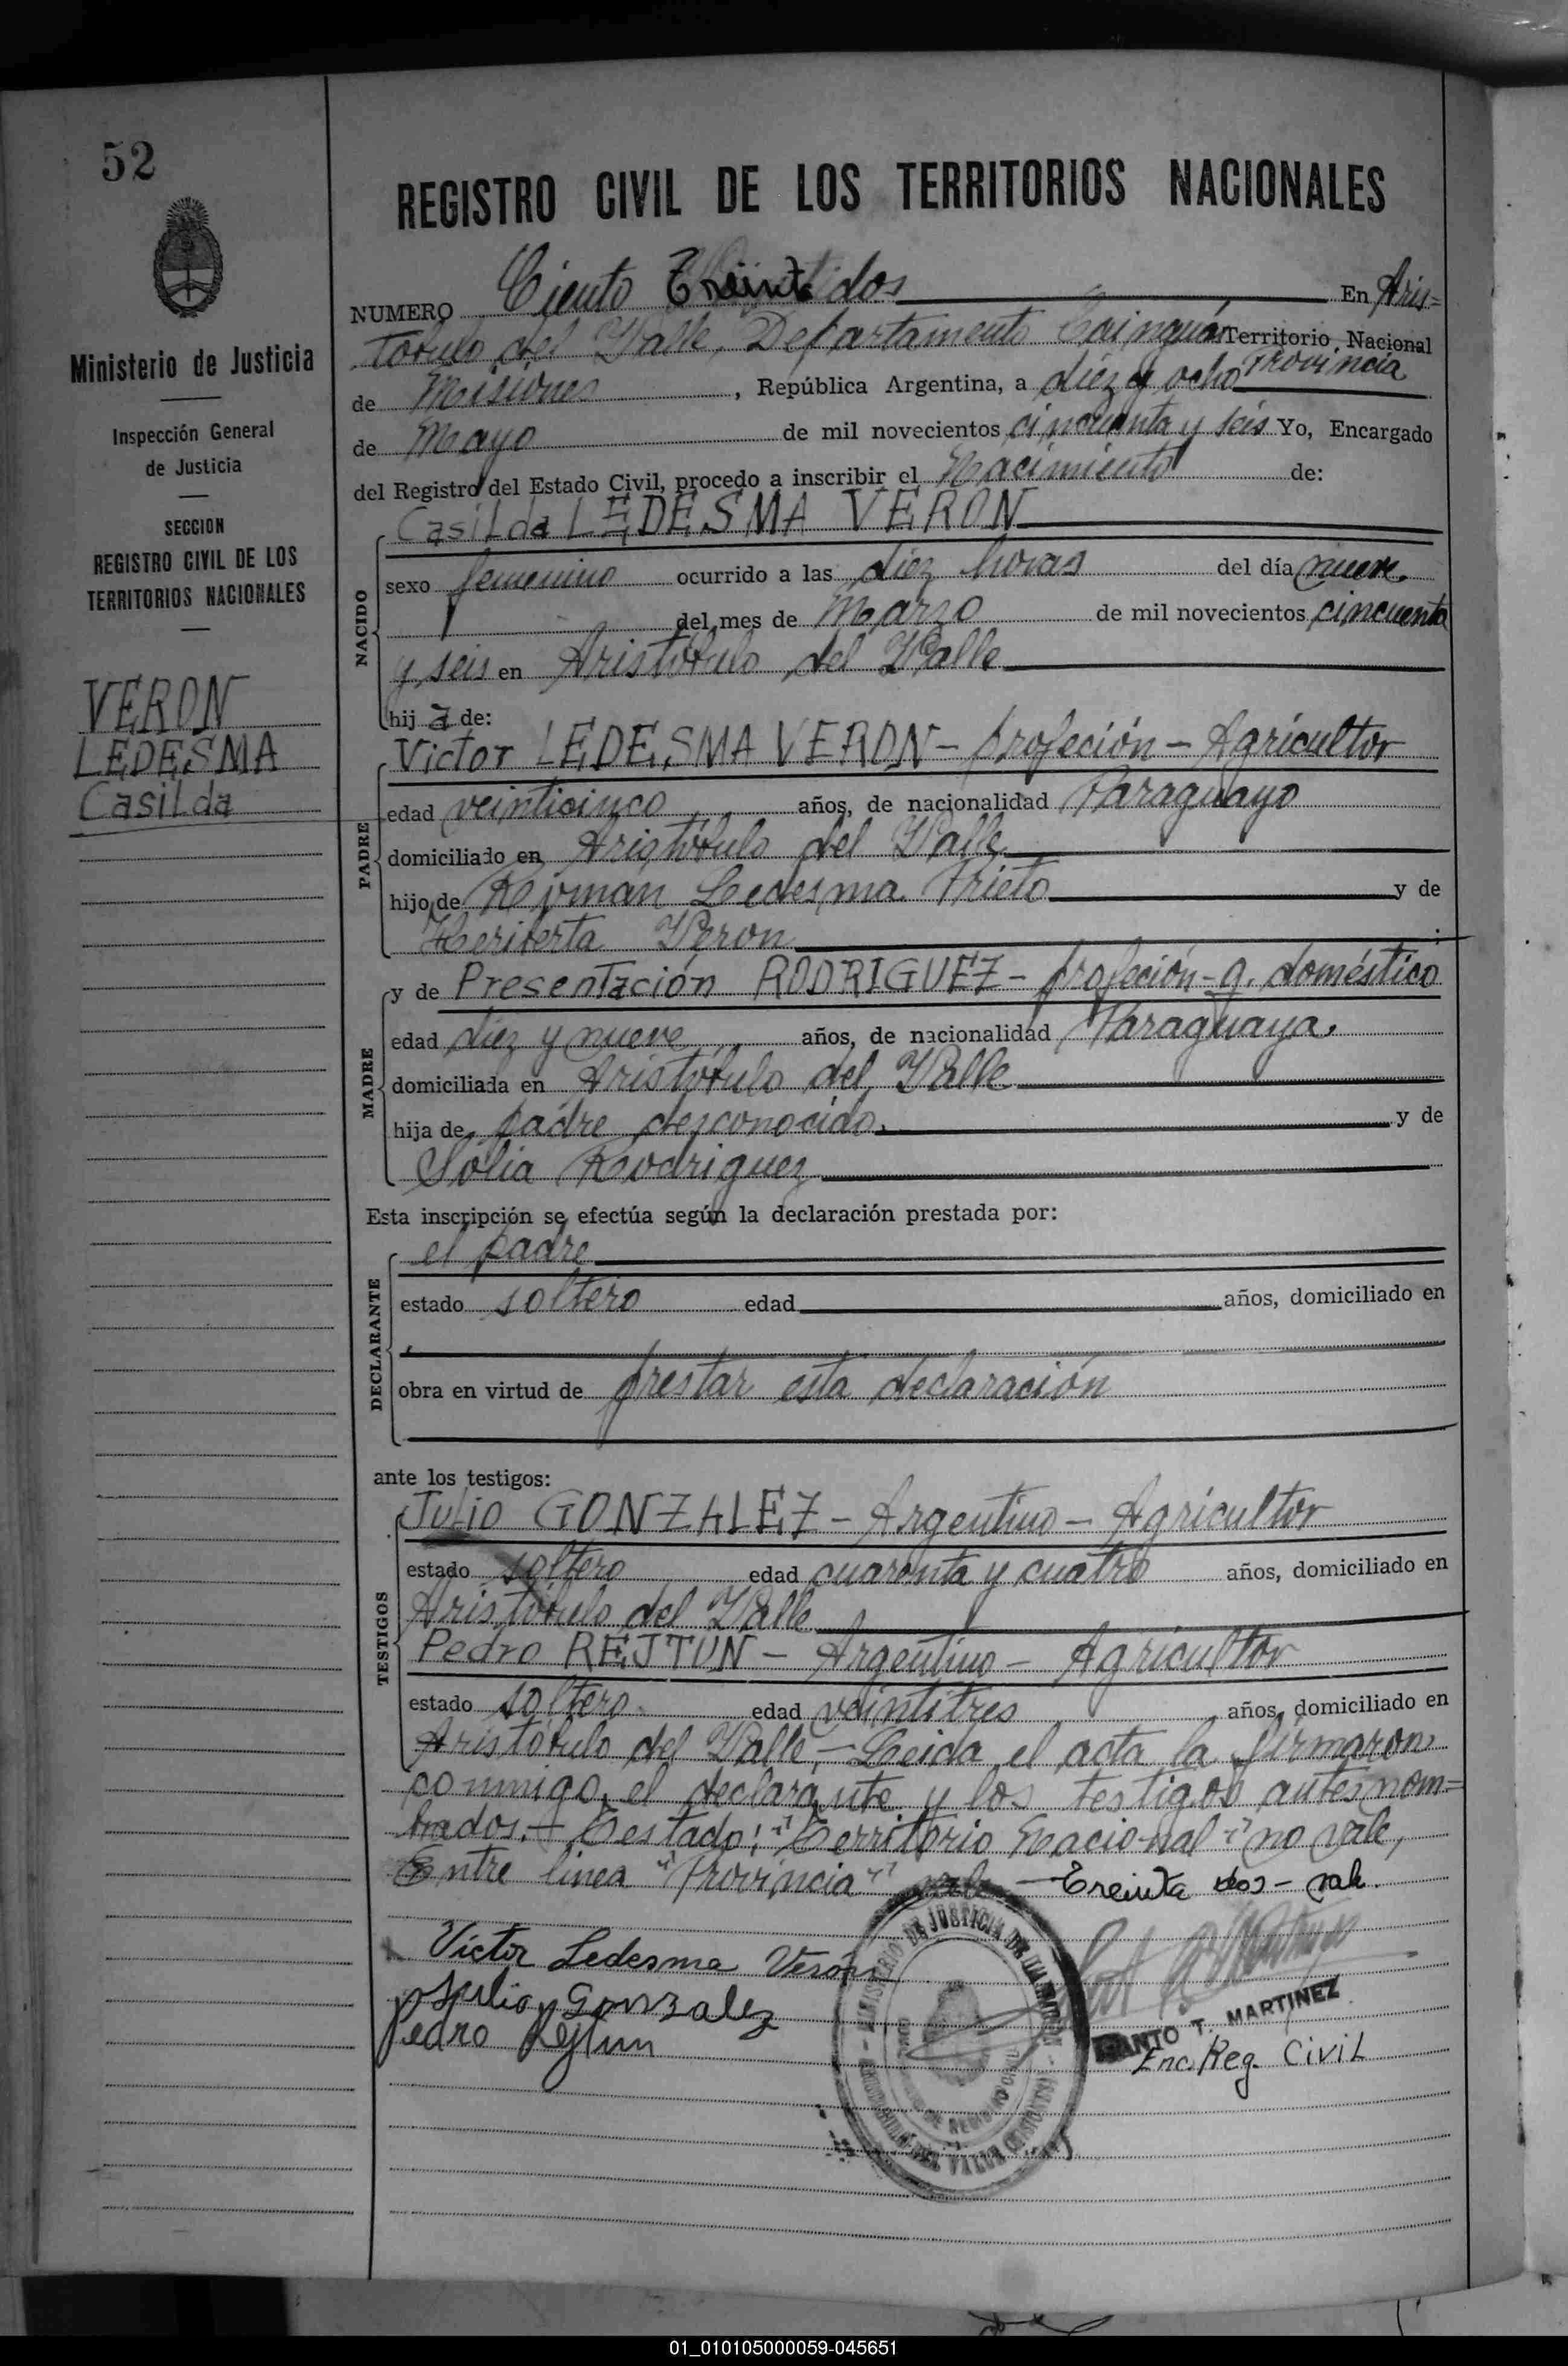 52
Ministerio de Justicia
Inspección General
de Justicia
SECCION
REGISTRO CIVIL DE LOS
TERRITORIOS NACIONALES
VERON
LEDESMA
Casilda
REGISTRO CIVIL DE LOS TERRITORIOS NACIONALES
NUMERO Ciento Treinta dos En Aris=
tobulo del Valle, Departamento Cainguás Territorio Nacional
Provincia
de Misiones, República Argentina, a diez y ocho
de Mayo de mil novecientos cincuenta y seis Yo, Encargado
del Registro del Estado Civil, procedo a inscribir el Nacimiento de:
Casilda LEDESMA VERON
NACIDO
sexo femenino ocurrido a las diez horas del día nueve
del mes de Marzo de mil novecientos cincuenta
y seis en Aristóbulo del Valle
hij a de:
Victor LEDESMA VERON - profeción - Agricultor
PADRE
edad veinticinco años, de nacionalidad Paraguayo
domiciliado en Aristóbulo del Valle
hijo de Román Ledesma Prieto y de
Heriberta Veron ;
y de Presentación RODRIGUEZ - profeción - q. doméstico
MADRE
edad diez y nueve años, de nacionalidad Paraguaya.
domiciliada en Aristóbulo del Valle
hija de padre desconocido. y de
Solia Rodriguez
Esta inscripción se efectúa según la declaración prestada por:
el padre
DECLARANTE
estado soltero edad años, domiciliado en
obra en virtud de prestar esta declaración
ante los testigos:
Julio GONZALEZ - Argentino - Agricultor
TESTIGOS
estado soltero edad cuarenta y cuatro años, domiciliado en
Aristóbulo del Valle
Pedro REJTUN - Argentino - Agricultor
estado soltero edad veintitres años, domiciliado en
Aristóbulo del Valle. - Leida el acta la firmaron
conmigo, el declarante y los testigos antes nom=
brados. - Testado: "Territorio Nacional" no vale,
Entre linea "Provincia" vale - Treinta dos - vale.
Victor Ledesma Verón
Julio Gonzalez
Pedro Rejtun
MINISTERIO DE JUSTICIA DE LA NACION
SANTO T. MARTINEZ
Enc. Reg. Civil
01_010105000059-045651